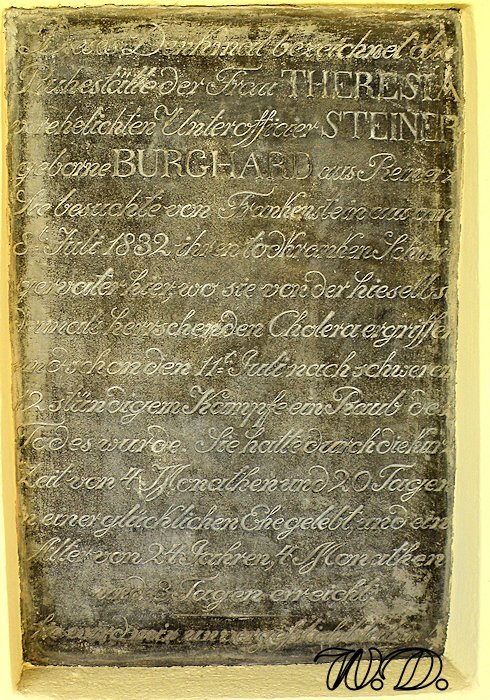 Dieses Denkmal bezeichnet die
Ruhestätte der Frau THERESIA
verehelichten Unterofficier STEINER
geborne BURGHARD aus Reinerz
Sie besuchte von Frankenstein aus am
Juli 1832 ihren todkranken Schwie
gervater hier, wo sie von der hieselbst
damals herrschenden Cholera ergriffen
und schon den 11t. Juli nach schweren
12 stündigem Kampfe ein Raub des
Todes wurde. Sie hatte durch die kurze
Zeit von 4 Monathen und 20 Tagen
in einer glücklichen Ehe gelebt und ein
Alter von 24 Jahren, 4 Monathen
und 8 Tagen erreicht.
W.D.